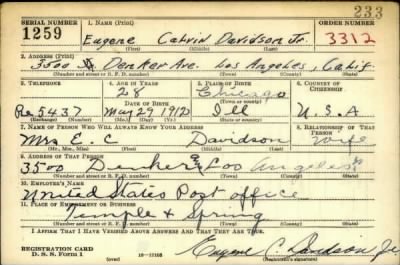 233
SERIAL NUMBER 1. NAME (Print) ORDER NUMBER
1259 Eugene Calvin Davidson Jr. 3312
(First) (Middle) (Last)
2. ADDRESS (Print)
3500 Denker Ave. Los Angeles, Calif.
(Number and street or R. F. D. number) (Town) (County) (State)
3. TELEPHONE 4. AGE IN YEARS 5. PLACE OF BIRTH 6. COUNTRY OF CITIZENSHIP
28 Chicago
DATE OF BIRTH (Town or county)
5437 May 29 1912 Ill U.S.A
(Exchange) (Number) (Mo.) (Day) (Yr.) (State or country)
7. NAME OF PERSON WHO WILL ALWAYS KNOW YOUR ADDRESS 8. RELATIONSHIP OF THAT PERSON
Mrs E. C Davidson Wife
(Mr., Mrs., Miss) (First) (Middle) (Last)
9. ADDRESS OF THAT PERSON
3500 Denker Los Angeles
(Number and street or R. F. D. number) (Town) (County) (State)
10. EMPLOYER'S NAME
United States Post office
11. PLACE OF EMPLOYMENT OR BUSINESS
Temple + Spring
(Number and street or R. F. D. number) (Town) (County) (State)
I AFFIRM THAT I HAVE VERIFIED ABOVE ANSWERS AND THAT THEY ARE TRUE.
REGISTRATION CARD
D. S. S. Form 1
(over) 16-17105
Eugene C. Davidson Jr.
(Registrant's signature)